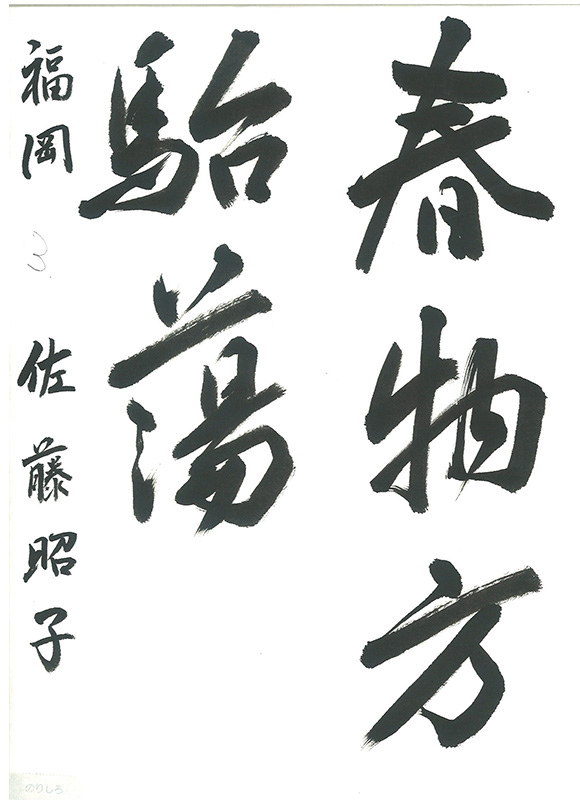 春物方
駘蕩
福岡 3 佐藤昭子
のりしろ